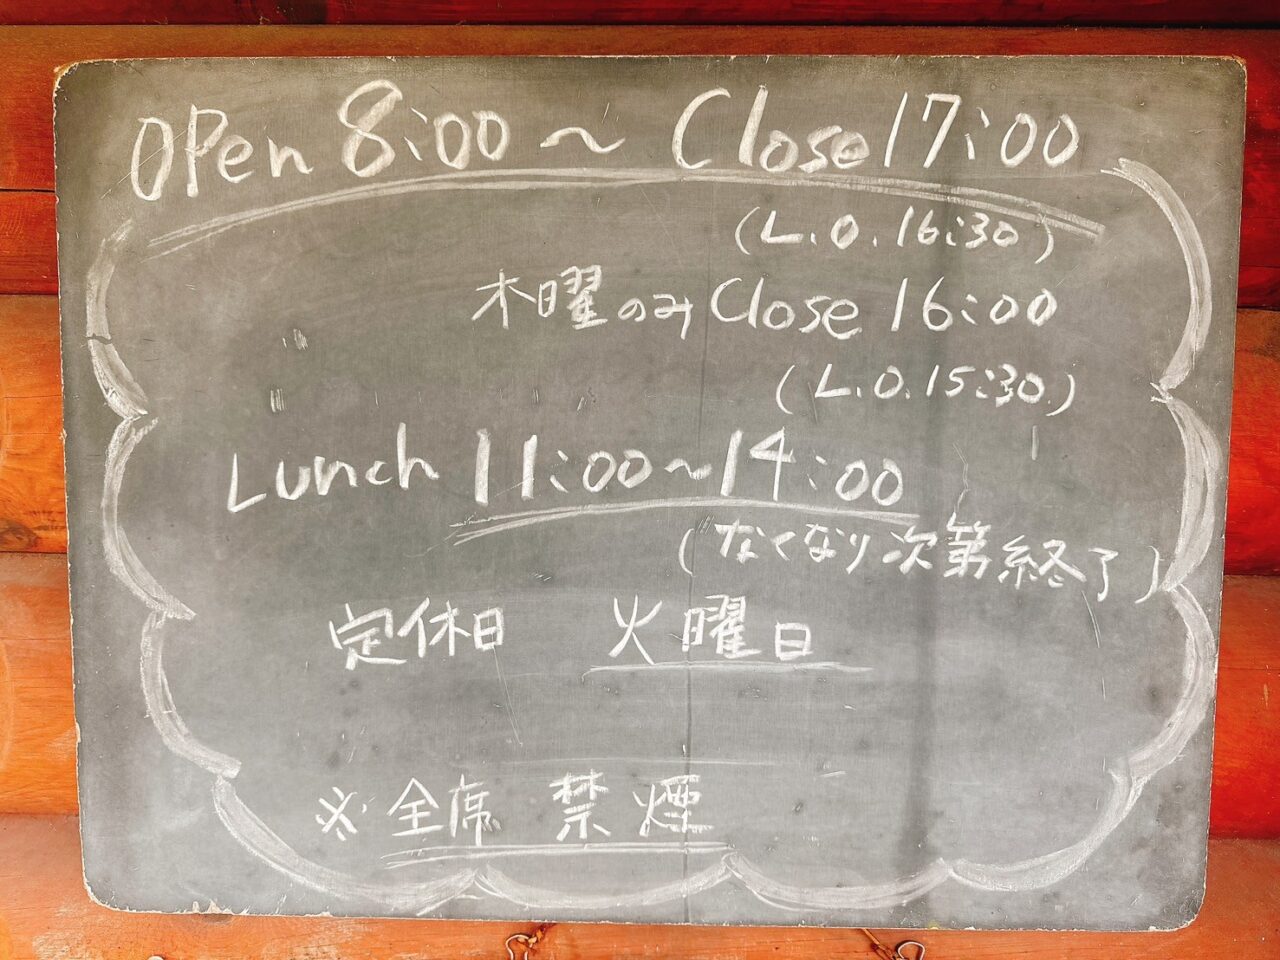 OPen 8:00 ~ Close 17:00
(L.O.16:30)
木曜のみ Close 16:00
(L.O.15:30)
Lunch 11:00~14:00
(なくなり次第終了)
定休日 火曜日
※全席 禁煙